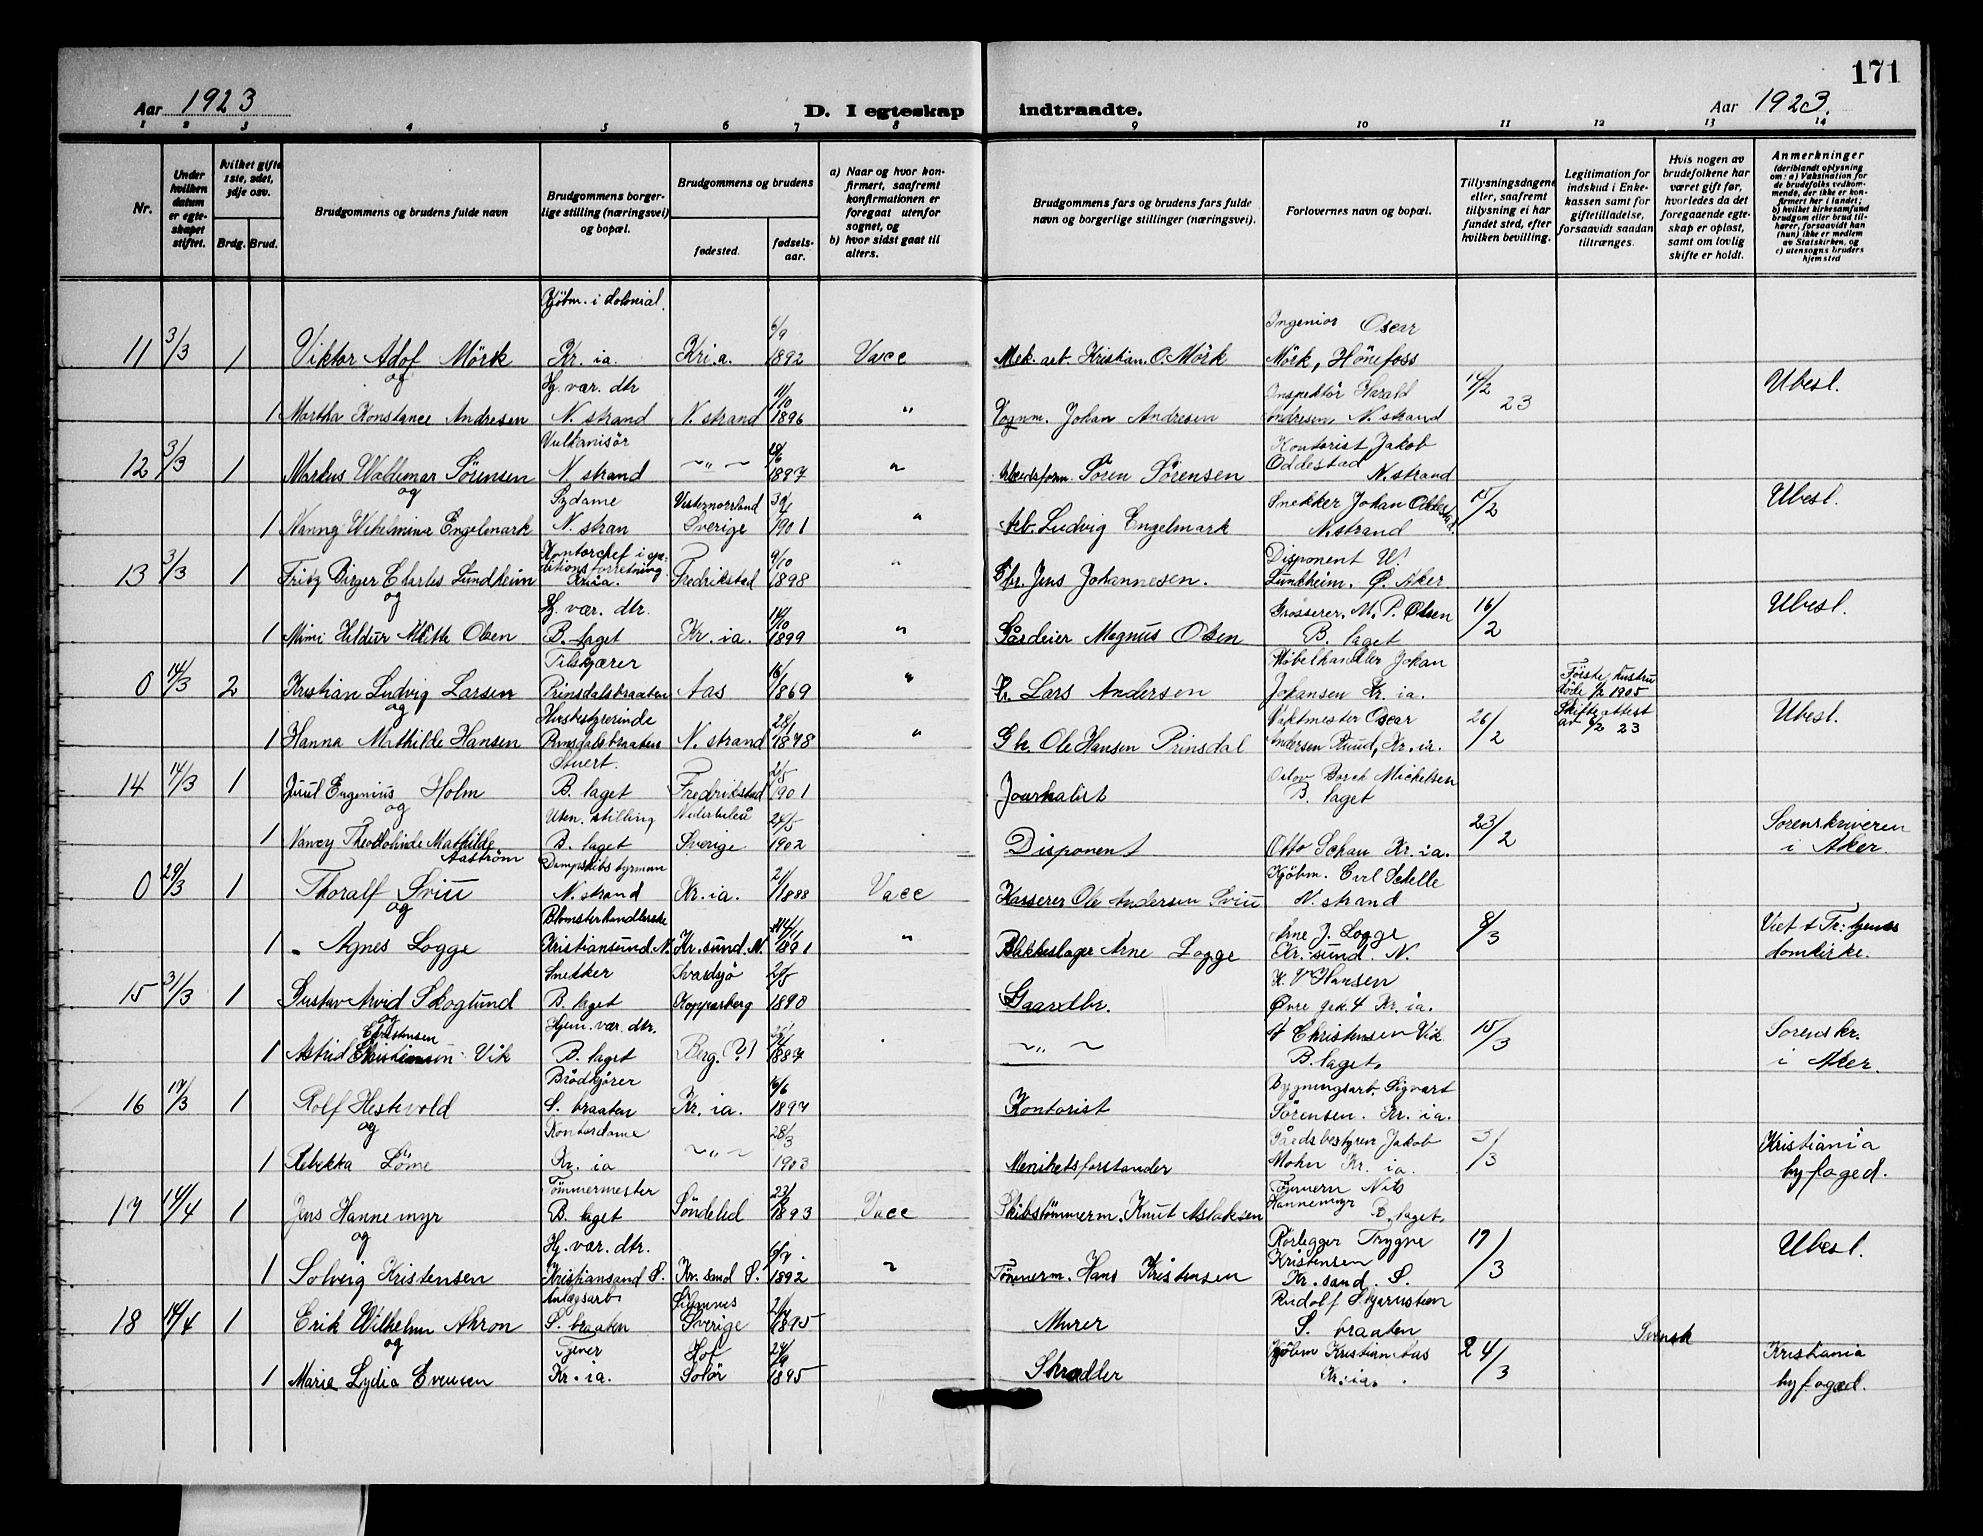 171
Aar 1923
D. I egteskap
indtraadte.
Aar 1923.
1 2 3 4 5 6 7 8 9 10 11 12 13 14
Nr.
Under hvilken datum er egteskapet stiftet.
Hvilket gifte 1ste, 2det, 3dje osv.
Brdg. Brud.
Brudgommens og brudens fulde navn
Brudgommens borgerlige stilling (næringsvei) og bopæl.
Brudgommens og brudens
fødested.
fødselsaar.
a) Naar og hvor konfirmert, saafremt konfirmationen er foregaat utenfor sognet, og
b) hvor sidst gaat til alters.
Brudgommens fars og brudens fars fulde navn og borgerlige stillinger (næringsvei).
Forlovernes navn og bopæl.
Tillysningsdagene eller, saafremt tillysning ei har fundet sted, efter hvilken bevilling.
Legitimation for indskud i Enkekassen samt for giftetilladelse, forsaavidt saadan tiltrænges.
Hvis nogen av brudefolkene har været gift før, hvorledes da det foregaaende egteskap er opløst, samt om lovlig skifte er holdt.
Anmerkninger
(deriblandt oplysning om: a) Vaksination for de brudefolks vedkommende, der ikke er konfirmert her i landet; b) hvilket kirkesamfund brudgom eller brud tilhører, forsaavidt han (hun) ikke er medlem av Statskirken, og c) utensogns bruders hjemsted
Kjöbm. i Kolonial.
Ingeniör Oscar
11 3/3 1 Viktor Adof Mörk Kr. ia. Kri.a. 6/9 1892 Vacc Mek. arb. Kristian. O. Mörk Mörk, Hönefoss
og Hj. vær. dtr Inspektör Harald 14/2 23 Ubesl.
1 Martha Konstance Andresen N. strand N. strand 11/10 1896 " Vognm. Johan Andresen Andresen N. strand
Vulkanisör Kontorist Jakob
12 3/3 1 Markus Waldemar Sörensen N. strand ~ " ~ 1897 " Arbeidsform. Sören Sörensen Oddestad N. strand
og Sydame Vesternorrland 30/4 Snekker Johan Oddestad 15/2 Ubesl.
1 Nanny Wilhelmina Engelmark N. stran Sverige 1901 " Arb. Ludvig Engelmark N. strand
13 3/3 1 Fritz Birger Charles Lundheim Kontorchef i Kr.ia. Fredrikstad 9/10 1898 " Jens Johannesen. Disponent W. Lundheim. Ö. Aker
og Hj. vær. dtr. Grosserer. M. P. Olsen 16/2 Ubesl.
1 Mimi Hildur Mette Olsen B. laget Kr. ia. 14/10 1899 " Gårdeier Magnus Olsen B. laget
Möbelhandler Johan
0 14/3 2 Kristian Ludvig Larsen Prinsdalsbraaten Aas 16/1 1869 " Lars Andersen Johansen Kr. ia. Förste hustru döde 1/2 1905
og Husbestyrerinde 28/1 Vaktmester Oscar 26/2 Skifteattest av 6/2 23 Ubesl.
1 Hanna Mathilde Hansen Prinsdalsbraaten N. strand 1878 " Gbr. Ole Hansen Prinsdal Andersen Ruud, Kr. ia.
14 14/3 1 Juul Eugenius Holm Stuert. B. laget Fredrikstad 2/5 1901 Journalist Borch Michelsen B. laget
og Uten. stilling Nederluleå 24/5 23/2 Sorenskriveren
1 Nancy Theodolinde Mathilde Aaström B. laget Sverige 1902 Disponent Otto Schau Kr. ia. i Aker.
Dampskibs styrman Kjöbm. Emil Schelle
0 28/3 1 Thoralf Sviu N. strand Kr. ia. 2/1 1888 Vacc Kasserer Ole Andersen Sviu N. strand
og Blomsterhandlerske Arne J. Logge 8/3 Viet i Tr: hjems
1 Agnes Logge Kristiansund N. Kr. sund. N. 1891 " Blikkeslager Arne Logge Kr. sund. N. domkirke.
Snekker Svardsjö 2/5 K. V. Hansen
15 31/3 1 Gustav Arvid Skoglund B. laget Kopparberg 1890 Gaardbr. Övre gt. 4 Kr. ia.
og Christensen Hjem. vær. dtr. A Christensen Vik 15/3 Sorenskr.
1 Astrid Vik B. laget Berg. (?) 1887 ~ " ~ B. laget. i Aker.
Brödkjörer 16/6 Bygningsarb. Sigvart
16 17/3 1 Rolf Hestvold S. braaten Kr. ia. 1897 Kontorist Sörensen. Kr. ia.
og Kontordame 28/3 Gårdsbestyrer Jakob 3/3 Kristiania
1 Rebekka Löme Kr. ia ~ " ~ 1903 Menighetsforstander Mohn Kr. ia. byfoged.
Tömmermester Tömmerm Nils
17 14/4 1 Jens Hannemyr B. laget Söndeled 1893 Vacc Skibstömmerm. Knut Aslaksen Hannemyr B. laget.
og Hj. vær. dtr. Rörlegger Trygve 17/3 Ubesl.
1 Solveig Kristensen Kristiansand S. Kr. sand S. 1892 " Tömmerm. Hans Kristensen Kristensen Kr. sand. S.
Anlægsarb Rudolf Skjernstien
18 14/4 1 Erik Wilhelm Ahron S. braaten Sverige 1895 Murer S. braaten Svensk
og Tjener Hof 24/9 Kjöbm Kristian Aas 24/3 Kristiania
1 Marie Lydia Evensen Kr. ia. Solör 1895 Skrædder Kr. ia. byfoged.